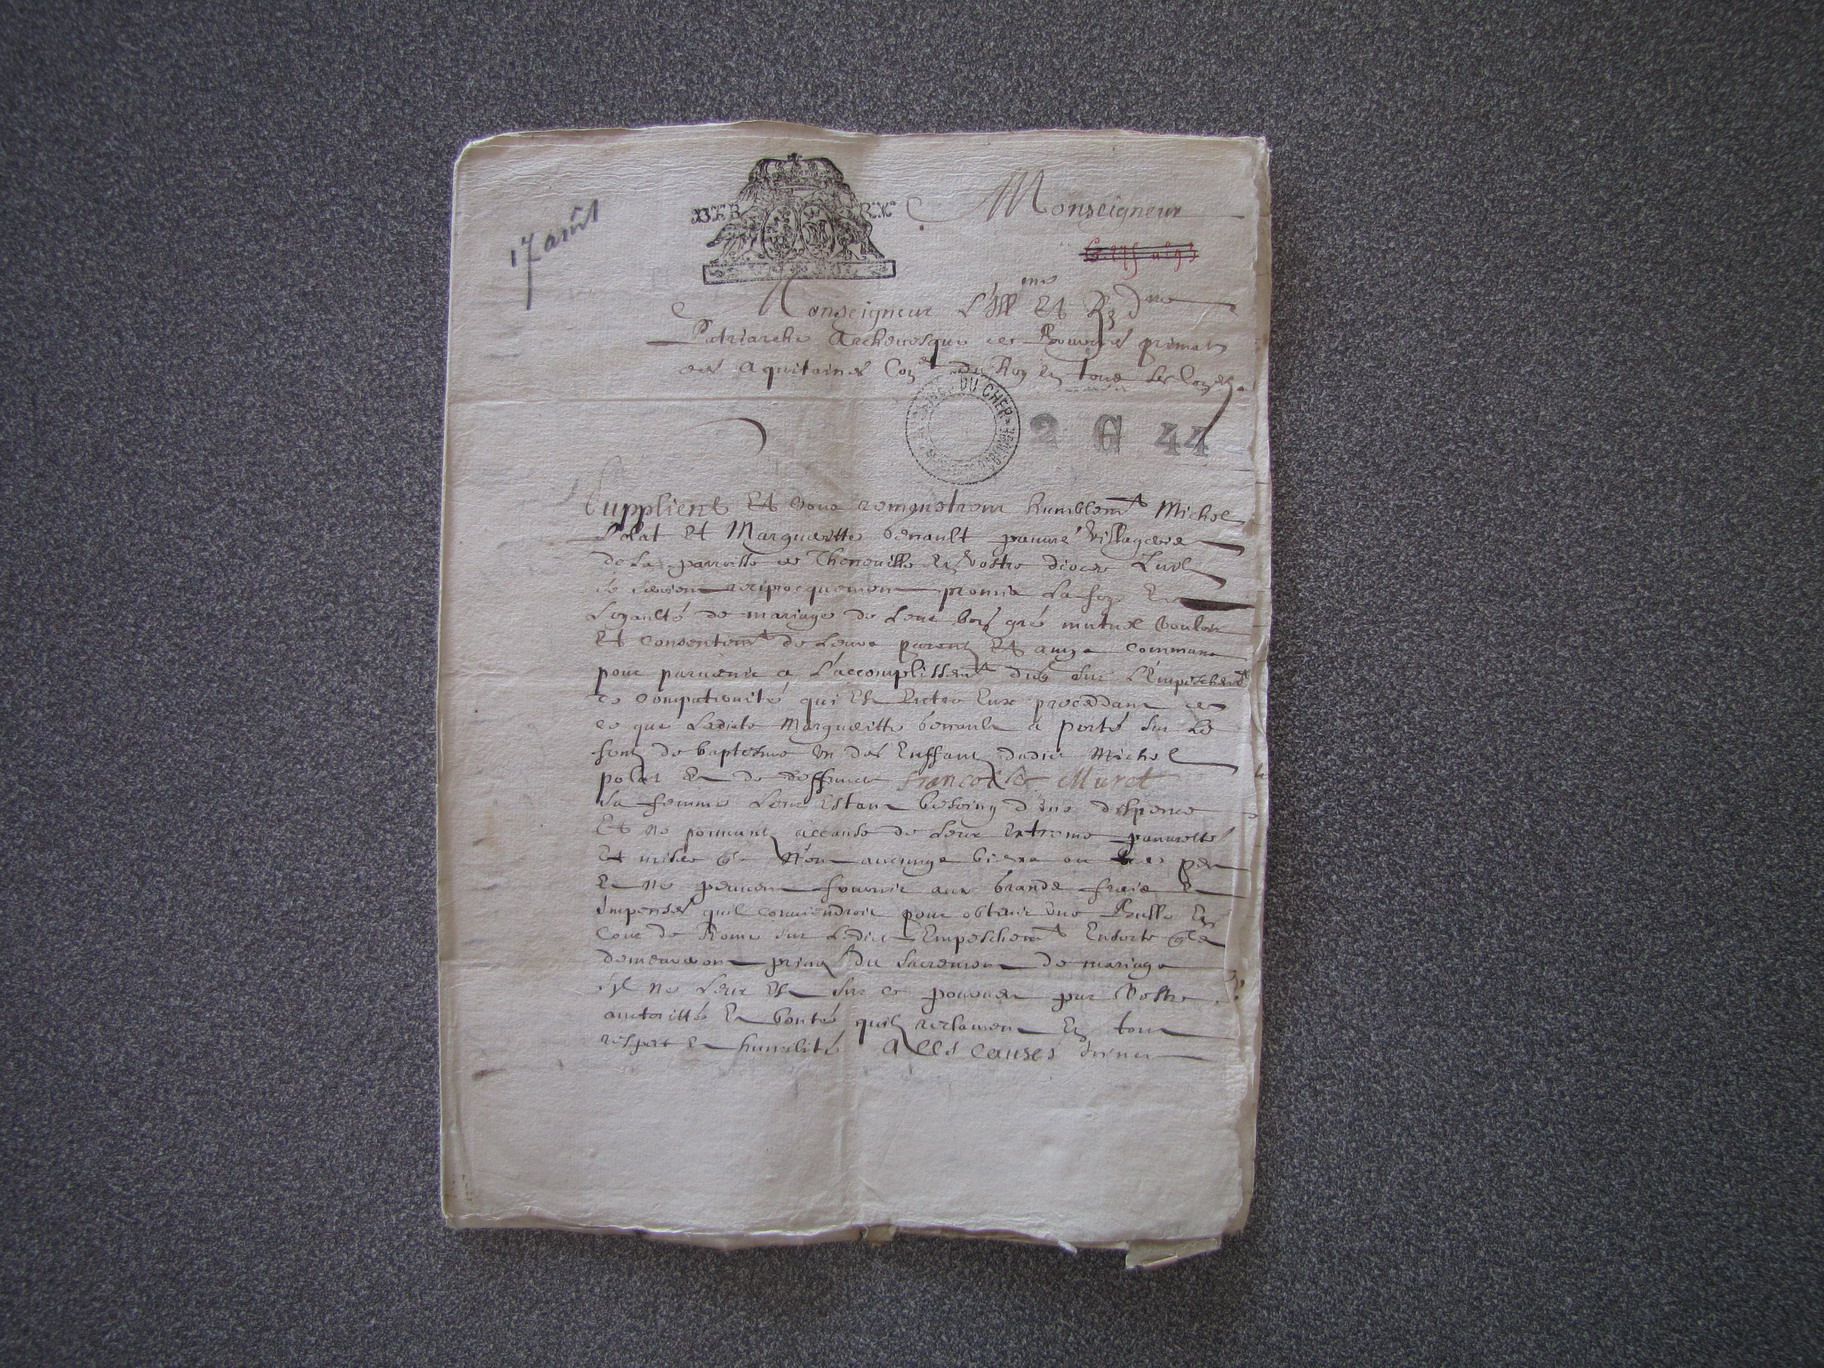 17 août
A Monseigneur
Monseigneur L'Ill^me Et R^dme
Patriarche Archevesque de Bourges primat
des Aquitaines Con^er du Roy En tous Ses Con^ls
DU CHER
2 G 44
Supplient Et vous remonstrent humblem^t Michel
Polat Et Margueritte benault pauvre villagere
de La parroisse de Theneuille En vostre diocese
reciprocquement promis La foy Et
Loyaulté de mariage de Leur bon gré mutuel vouloir
Et Consentem^t de Leurs parens Et amys communs
pour parvenir a L'accomplissem^t sur L'Empeschem^t
de Compaternité qui Est Entre Eux procedant de
ce que Ladicte Margueritte benault a porté sur Le
fons de baptesme un des Enffans dudict Michel
polat Et de deffuncte francoise Muret
Sa femme Leur Estant besoing d'une dispence
Et ne pouvant accause de Leur Extreme pauvretté
Et misere N'on aucungs biens ou peu
Et ne peuvent fournir aux grands frais Et
impenses quil conviendroit pour obtenir une Bulle En
Cour de Rome sur Ledict Empeschem^t Ensorte
demeureront privés du Sacrement de mariage
s'il ne Leur Est sur ce pourveu par Vostre
authoritté Et bonté quils reclament En tout
respect Et humilité A Ces Causes